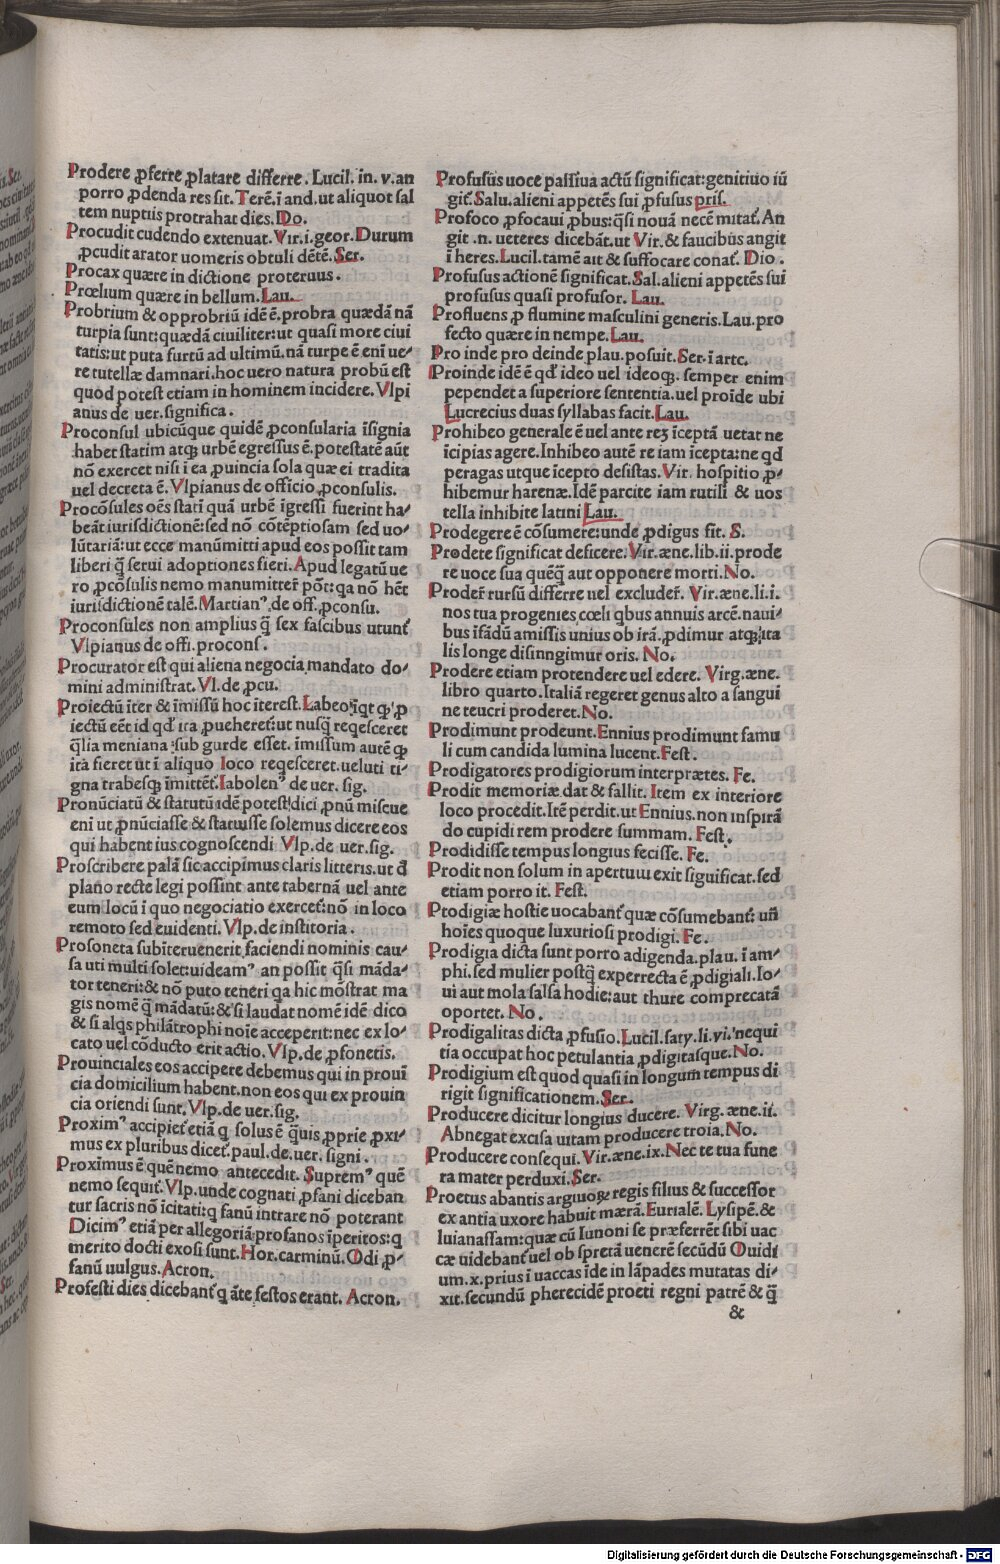 Prodere ꝓferre ꝓlatare differre. Lucil. in. v. an
porro ꝓdenda res sit. Terē. ī and. ut aliquot sal
tem nuptiis protrahat dies. Do.
Procudit cudendo extenuat. Vir. i. geor. Durum
ꝓcudit arator uomeris obtuli dētē. Ser.
Procax quære in dictione proteruus.
Prœlium quære in bellum. Lau.
Probrium & opprobriū idē ē. probra quædā nā
turpia sunt: quædā ciuiliter: ut quasi more ciui
tatis: ut puta furtū ad ultimū. nā turpe ē enī ue⸗
re tutellæ damnari. hoc uero natura probū est
quod potest etiam in hominem incidere. Vlpi
anus de uer. significa.
Proconsul ubicūque quidē ꝓconsularia īsignia
habet statim atqꝫ urbē egressus ē. potestatē aūt
nō exercet nisi ī ea ꝓuincia sola quæ ei tradita
uel decreta ē. Vlpianus de officio ꝓconsulis.
Procōsules oēs stati quā urbē īgressi fuerint ha⸗
beāt iurisdictionē: sed nō cōtēptiosam sed uo⸗
lūtariā: ut ecce manūmitti apud eos possit tam
liberi q̄ serui adoptiones fieri. Apud legatū ue
ro ꝓcōsulis nemo manumitterꝭ pōt: qa nō hēt
iurisdictionē talē. Martianꝰ de off. ꝓconsu.
Proconsules non amplius q̄ sex fascibus utunt᷑
Vlpianus de offi. procons.
Procurator est qui aliena negocia mandato do⸗
mini administrat. Vl. de ꝓcu.
Proiectū iter & īmissū hoc īterest. Labeo īqt qꝙ ꝓ
iectū eēt id qd̄ ita ꝓueheret᷑: ut nusq̄ reqesceret
q̄lia meniana: sub gurde esset. īmissum autē qꝙ
ita fieret ut ī aliquo loco reqesceret. ueluti ti⸗
gna trabesqꝫ īmittēt᷑. Iabolenꝰ de uer. sig.
Pronūciatū & statutū idē potest: dici ꝓnū miscue
eni ut ꝓnūciasse & statuisse solemus dicere eos
qui habent ius cognoscendi Vlp. de uer. sig.
Proscribere palā sic accipimus claris litteris. ut d̄
plano recte legi possint ante tabernā uel ante
eum locū ī quo negociatio exercet᷑: nō in loco
remoto sed euidenti. Vlp. de institoria.
Prosoneta subīteruenerit faciendi nominis cau⸗
sa uti multi solet: uideamꝰ an possit q̄si māda⸗
tor teneri: & nō puto teneri qa hic mōstrat ma
gis nomē q̄ mādatū: & si laudat nomē idē dico
& si alqs philātrophi noīe acceperit: nec ex lo⸗
cato uel cōducto erit actio. Vlp. de ꝓsonetis.
Prouinciales eos accipere debemus qui in prouī
cia domicilium habent. non eos qui ex prouin
cia oriendi sunt. Vlp. de uer. sig.
Proximꝰ accipiet᷑ etiā q solus ē q̄uis ꝓprie ꝓxi⸗
mus ex pluribus dicet᷑. paul. de. uer. signi.
Proximus ē quē nemo antecedit. Supremꝰ quē
nemo sequit᷑. Vlp. unde cognati ꝓfani diceban
tur sacris nō īcitati: q fanū intrare nō poterant
Dicimꝰ etiā per allegoriā profanos īperitos: q
merito docti exosi sunt. Hor. carminū. Odi ꝓ⸗
fanū uulgus. Acron.
Profesti dies dicebant᷑ q āte festos erant. Acron.
Profusus uoce passiua actū significat: genitiuo iū
git᷑. Salu. alieni appetēs sui ꝓfusus pris.
Profoco ꝓfocaui ꝓbus: q̄si nouā necē mitat᷑. An
git .n. ueteres dicebāt. ut Vir. & faucibus angit
ī heres. Lucil. tamē ait & suffocare conat᷑. Dio.
Profusus actionē significat. Sal. alieni appetēs sui
profusus quasi profusor. Lau.
Profluens ꝓ flumine masculini generis. Lau. pro
fecto quære in nempe. Lau.
Pro inde pro deinde plau. posuit. Ser. ī artc.
Proinde idē ē qd̄ ideo uel ideoqꝫ. semper enim
pependet a superiore sententia. uel proīde ubi
Lucrecius duas syllabas facit. Lau.
Prohibeo generale ē uel ante reꝫ īceptā uetat ne
īcipias agere. Inhibeo autē re iam īcepta: ne qd̄
peragas utque īcepto desistas. Vir. hospitio ꝓ⸗
hibemur harenæ. Idē parcite iam rutili & uos
tella inhibite latini Lau.
Prodegere ē cōsumere: unde ꝓdigus fit. S.
Prodete significat deficere. Vir. æne. lib. ii. prode
re uoce sua quēq̄ aut opponere morti. No.
Proder᷑ rursū differre uel excluder᷑. Vir. æne. li. i.
nos tua progenies cœli qbus annuis arcē. naui⸗
bus īfādū amissis unius ob irā. ꝓdimur atqꝫ ita
lis longe disinngimur oris. No.
Prodere etiam protendere uel edere. Virg. æne.
libro quarto. Italiā regeret genus alto a sangui
ne teucri proderet. No.
Prodimunt prodeunt. Ennius prodimunt famu
li cum candida lumina lucent. Fest.
Prodigatores prodigiorum interprætes. Fe.
Prodit memoriæ dat & fallit. Item ex interiore
loco procedit. Itē perdit. ut Ennius. non inspirā
do cupidi rem prodere summam. Fest.
Prodidisse tempus longius fecisse. Fe.
Prodit non solum in apertuu exit siguificat. sed
etiam porro it. Fest.
Prodigiæ hostie uocabant᷑ quæ cōsumebant᷑: un̄
hoīes quoque luxuriosi prodigi. Fe.
Prodigia dicta sunt porro adigenda. plau. ī am⸗
phi. sed mulier postq̄ experrecta ē ꝓdigiali. Io⸗
ui aut mola salsa hodie: aut thure comprecatā
oportet. No.
Prodigalitas dicta ꝓfusio. Lucil. saty. li. vi. nequi
tia occupat hoc petulantia ꝓdigitasque. No.
Prodigium est quod quasi in longum tempus di
rigit significationem. Ser.
Producere dicitur longius ducere. Virg. æne. ii.
Abnegat excisa uitam producere troia. No.
Producere consequi. Vir. æne. ix. Nec te tua fune
ra mater perduxi. Ser.
Proetus abantis arguioꝝ regis filius & successor
ex antia uxore habuit mærā. Eurialē. Lysipē. &
luianassam: quæ cū Iunoni se præferrēt sibi uac
cæ uidebant᷑ uel ob spretā uenerē secūdū Ouidi
um. x. prius ī uaccas īde in lāpades mutatas di⸗
xit. secundū pherecidē proeti regni patrē & q̄
&
Digitalisierung gefördert durch die Deutsche Forschungsgemeinschaft - DFG